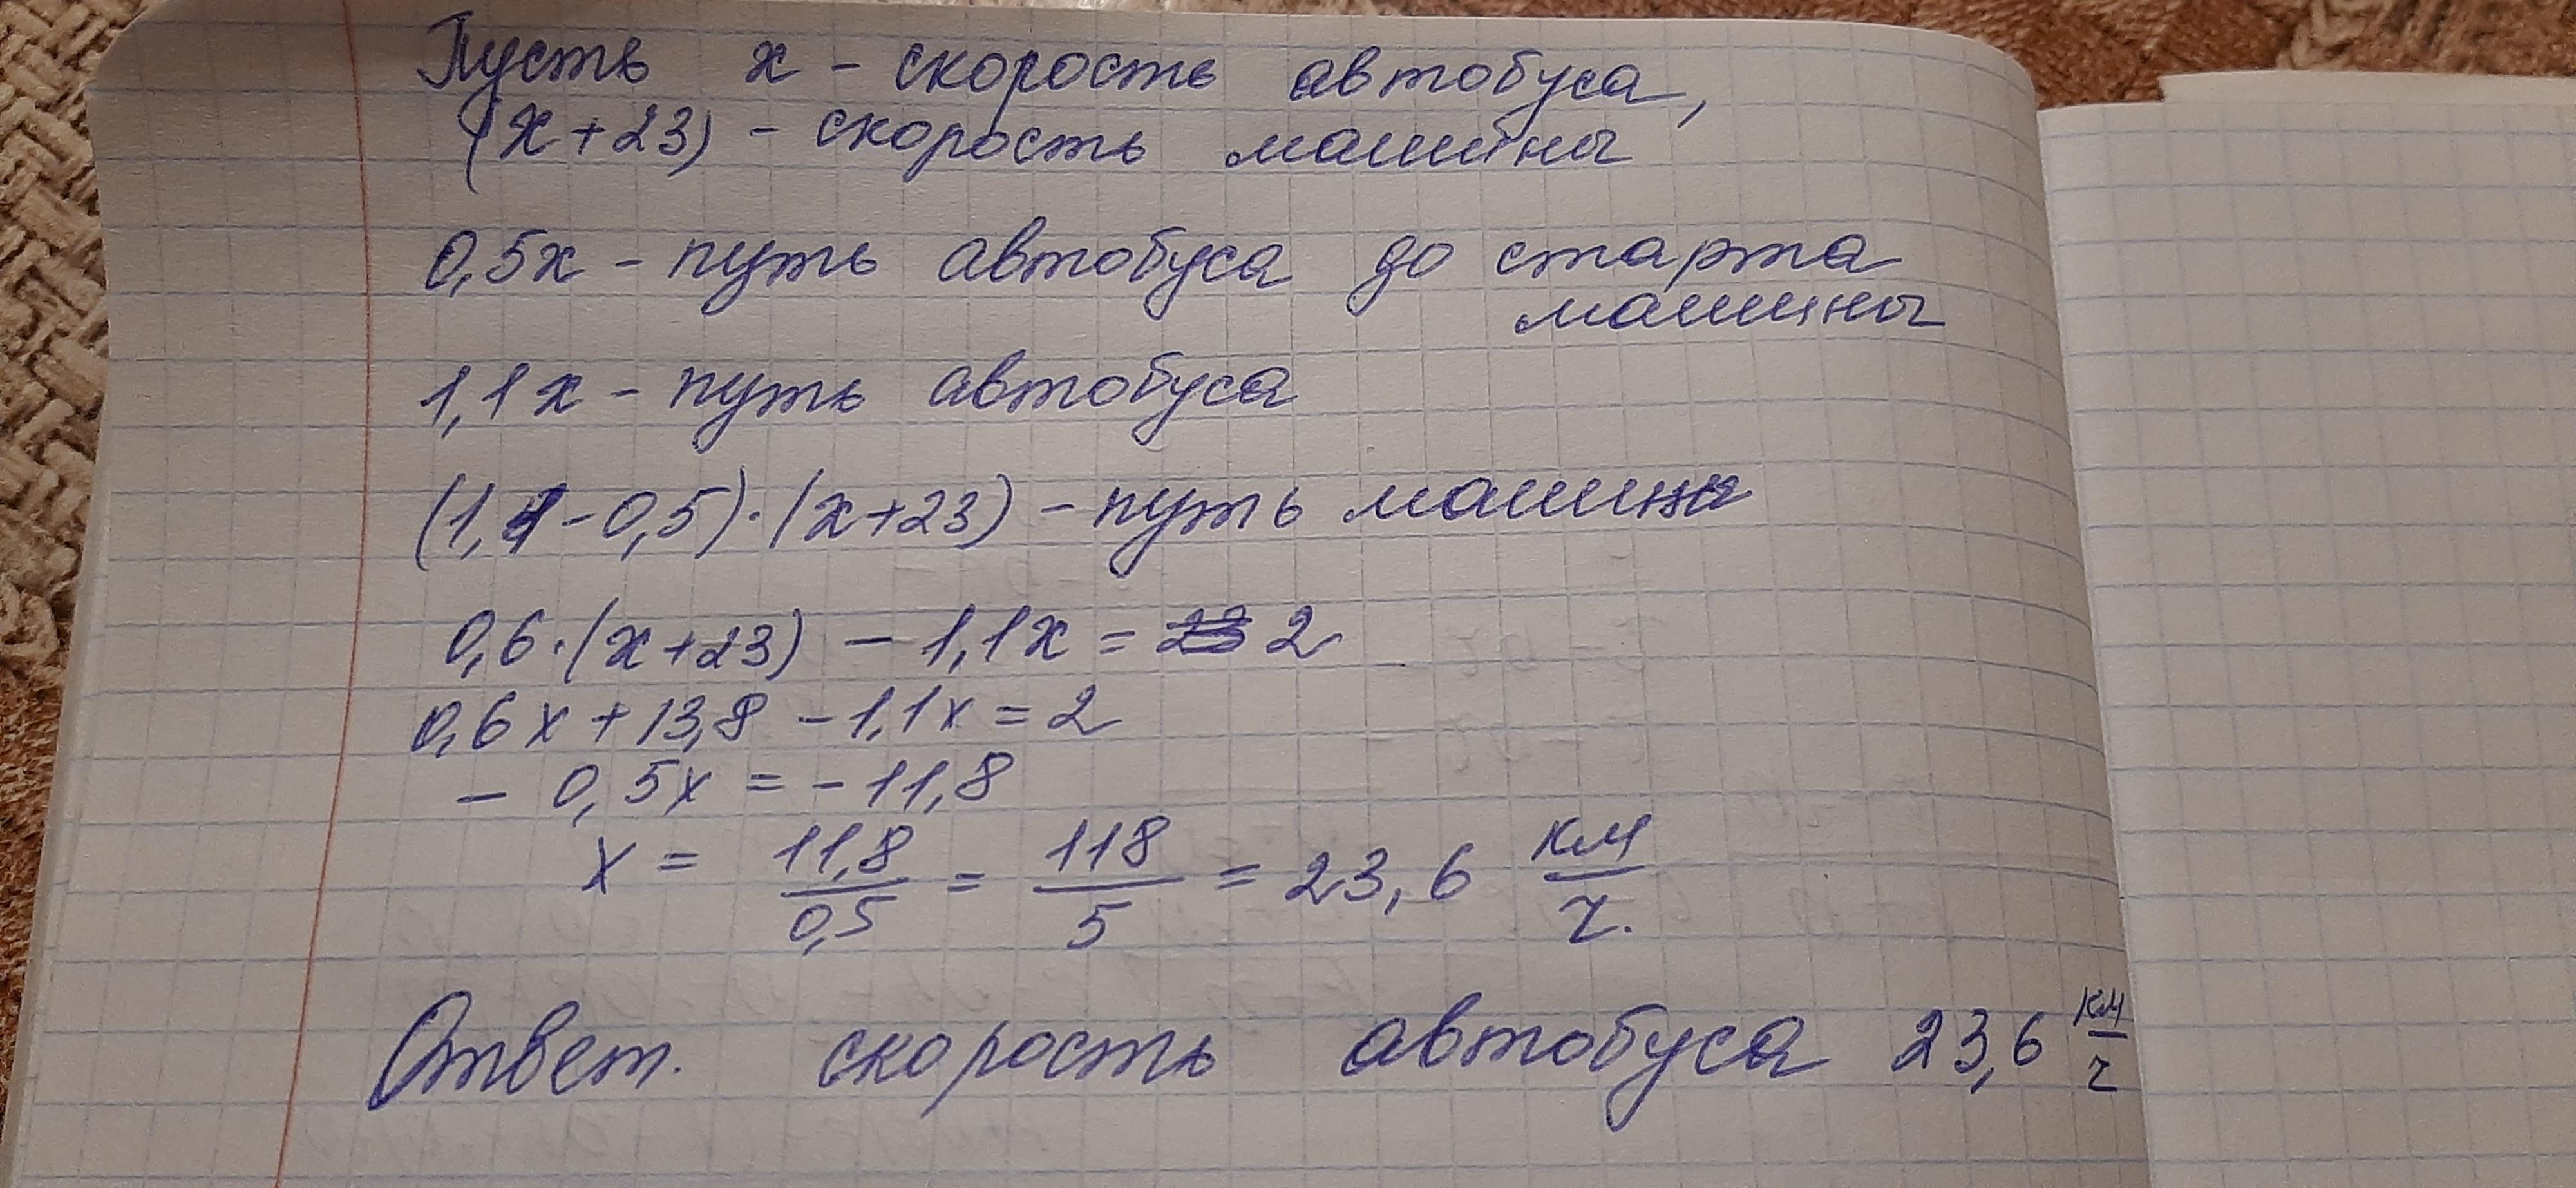 Пусть x - скорость автобуса,
(x+23) - скорость машины
0,5x - путь автобуса до старта
машины
1,1x - путь автобуса
(1,1-0,5)·(x+23) - путь машины
0,6·(x+23) - 1,1x = 23 2
0,6x + 13,8 - 1,1x = 2
- 0,5x = - 11,8
x = 11,8/0,5 = 118/5 = 23,6 км/ч.
Ответ. скорость автобуса 23,6 км/ч